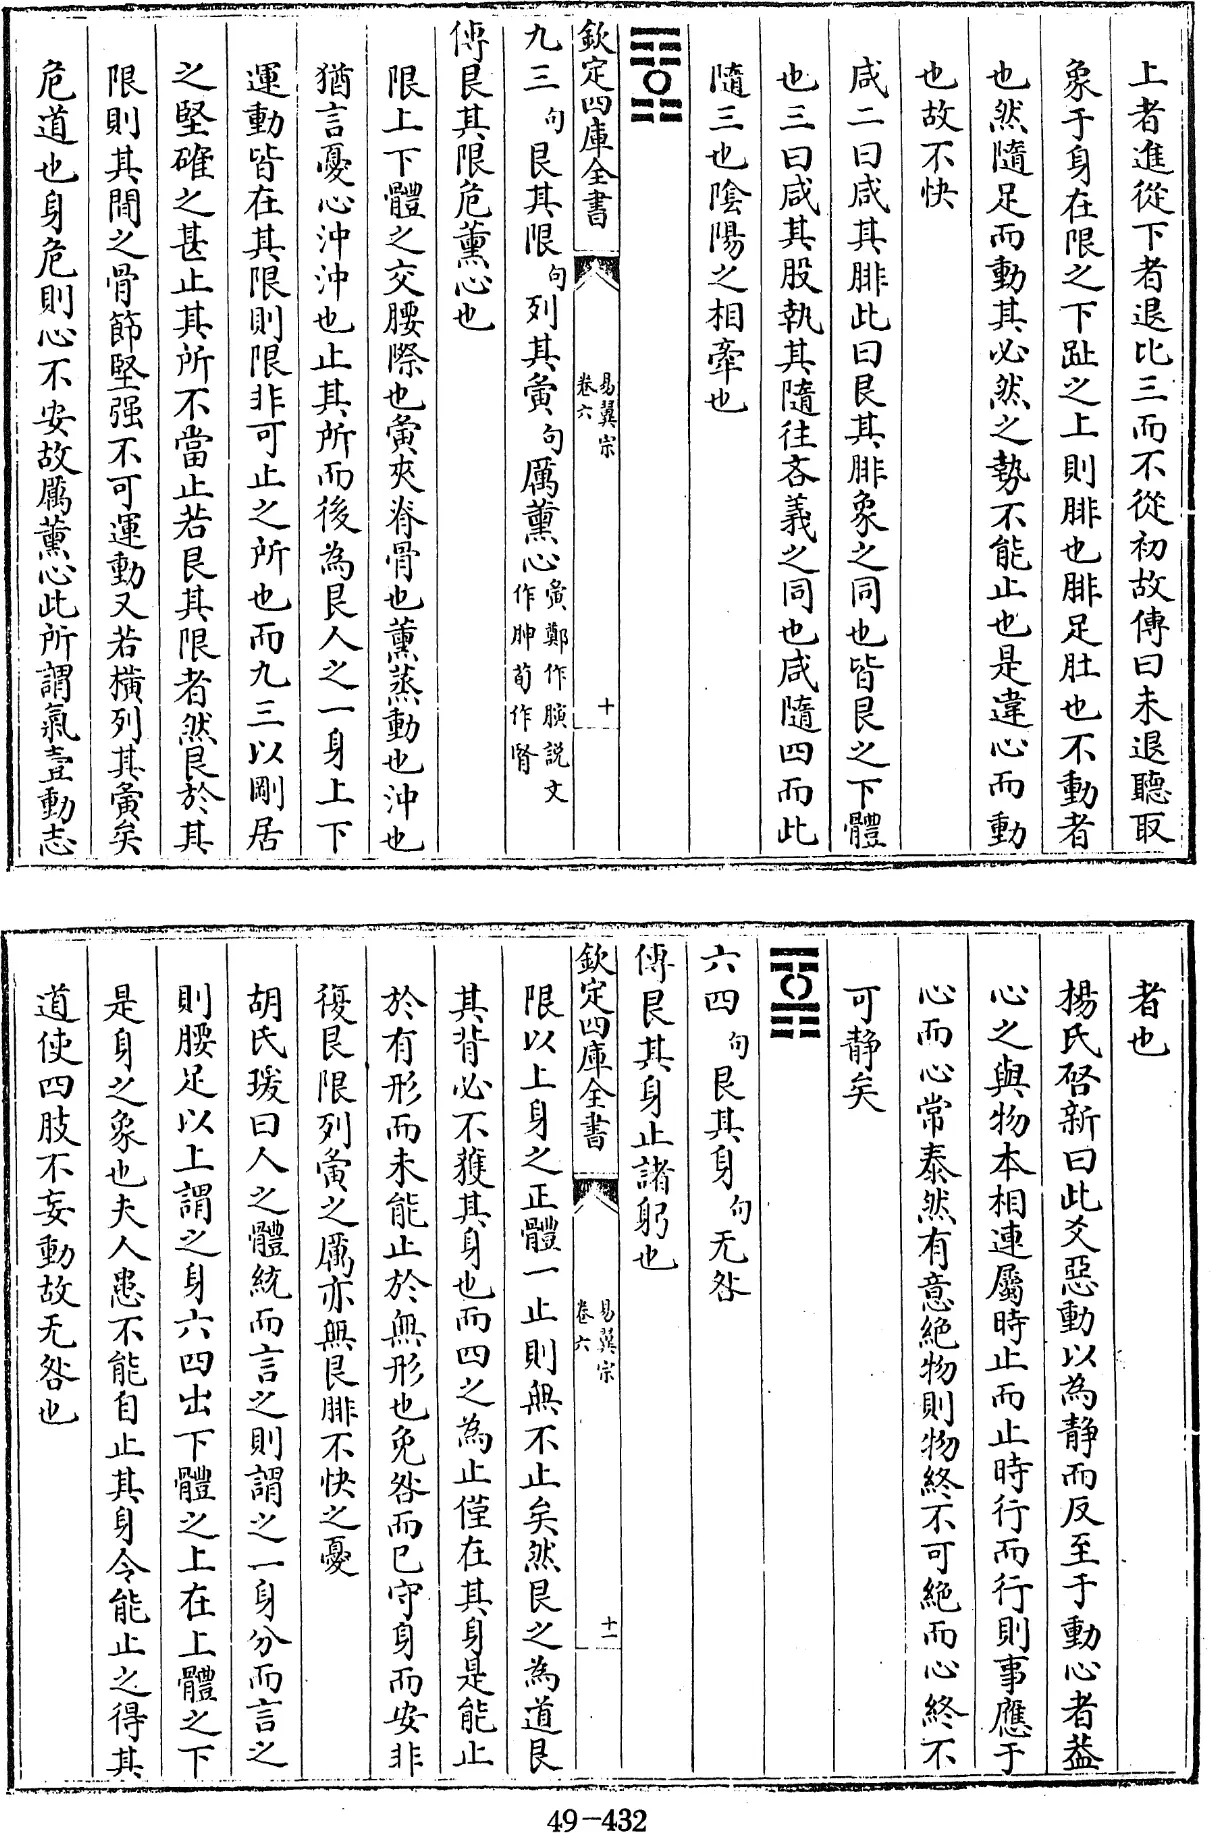 上者進從下者退比三而不從初故傳曰未退聽取
象于身在限之下趾之上則腓也腓足肚也不動者
也然隨足而動其必然之勢不能止也是違心而動
也故不快
咸二曰咸其腓此曰艮其腓象之同也皆艮之下體
也三曰咸其股執其隨往吝義之同也咸隨四而此
隨三也陰陽之相牽也
欽定四庫全書
易翼宗
卷六
十
九三句艮其限句列其夤句厲薰心夤鄭作䐄說文
作胂荀作腎
傳艮其限危薰心也
限上下體之交腰際也夤夾脊骨也薰蒸動也沖也
猶言憂心沖沖也止其所而後為艮人之一身上下
運動皆在其限則限非可止之所也而九三以剛居
之堅確之甚止其所不當止若艮其限者然艮於其
限則其間之骨節堅强不可運動又若橫列其夤矣
危道也身危則心不安故厲薰心此所謂氣壹動志
者也
楊氏啓新曰此爻惡動以為静而反至于動心者葢
心之與物本相連屬時止而止時行而行則事應于
心而心常泰然有意絶物則物終不可絶而心終不
可静矣
六四句艮其身句无咎
傳艮其身止諸躬也
欽定四庫全書
易翼宗
卷六
十一
限以上身之正體一止則無不止矣然艮之為道艮
其背必不獲其身也而四之為止僅在其身是能止
於有形而未能止於無形也免咎而已守身而安非
復艮限列夤之厲亦無艮腓不快之憂
胡氏瑗曰人之體統而言之則謂之一身分而言之
則腰足以上謂之身六四出下體之上在上體之下
是身之象也夫人患不能自止其身令能止之得其
道使四肢不妄動故无咎也
49-432